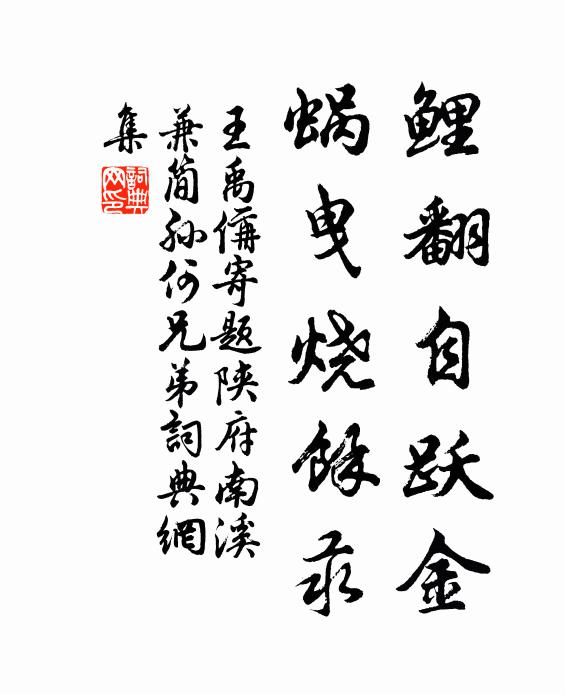 鲤翻自跃金
蜗曳烧餘汞
王禹偁寄题陕府南溪
兼简孙何兄弟詞典網
集
詞典
网印